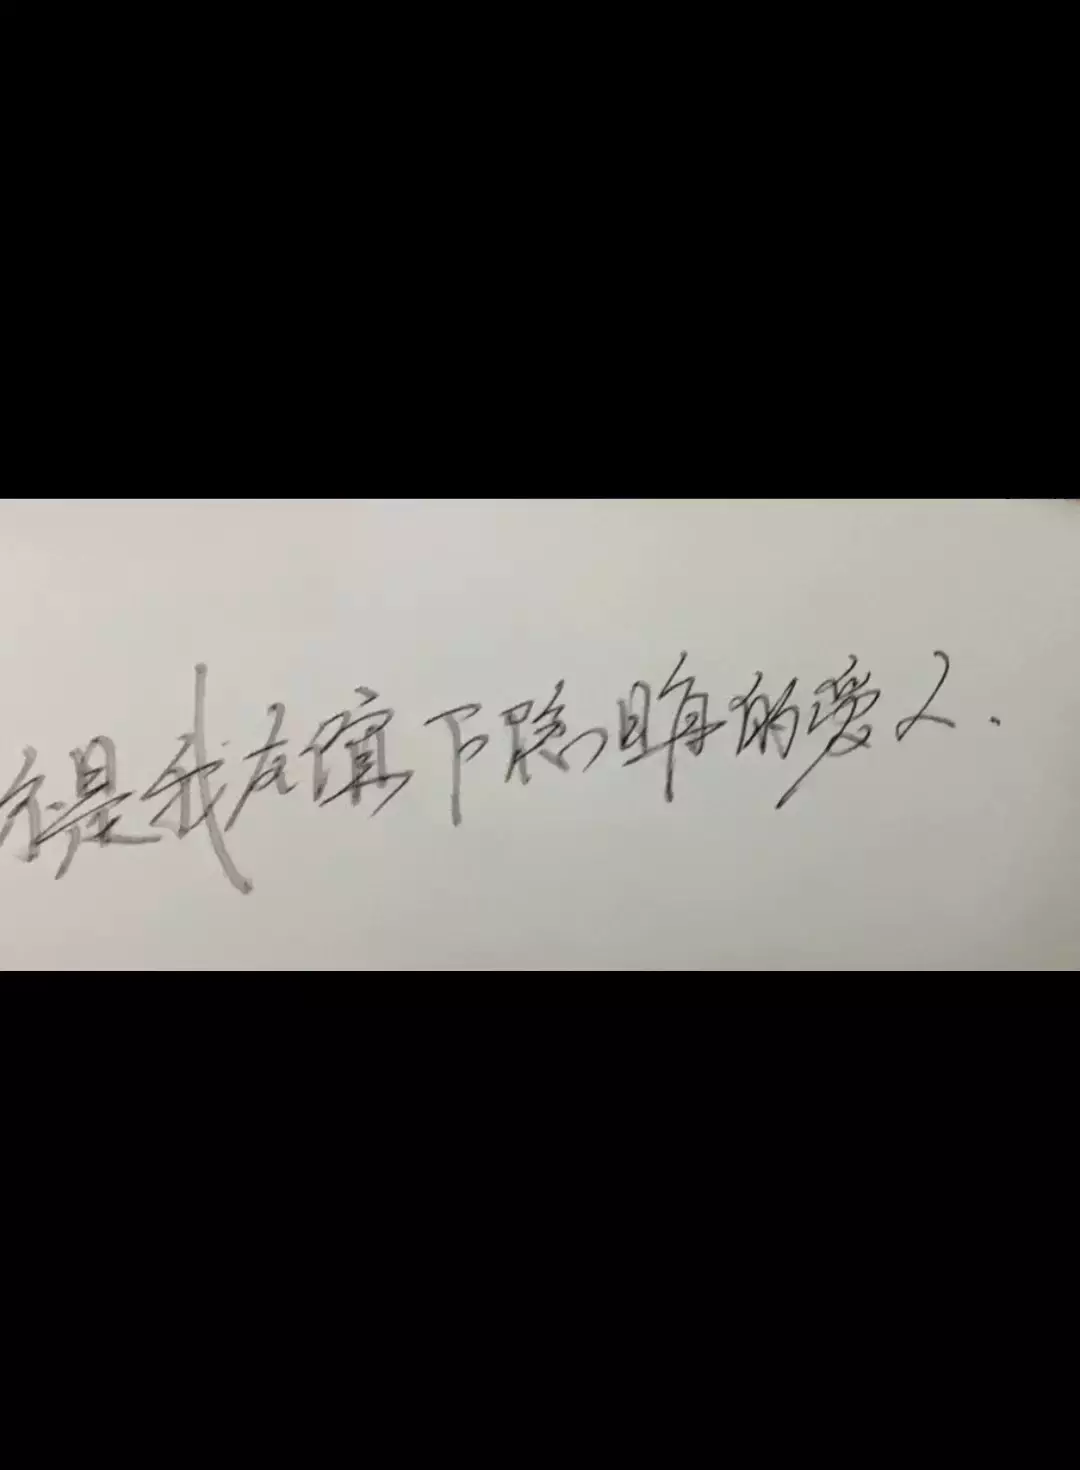 是我友谊下隐晦的爱人.